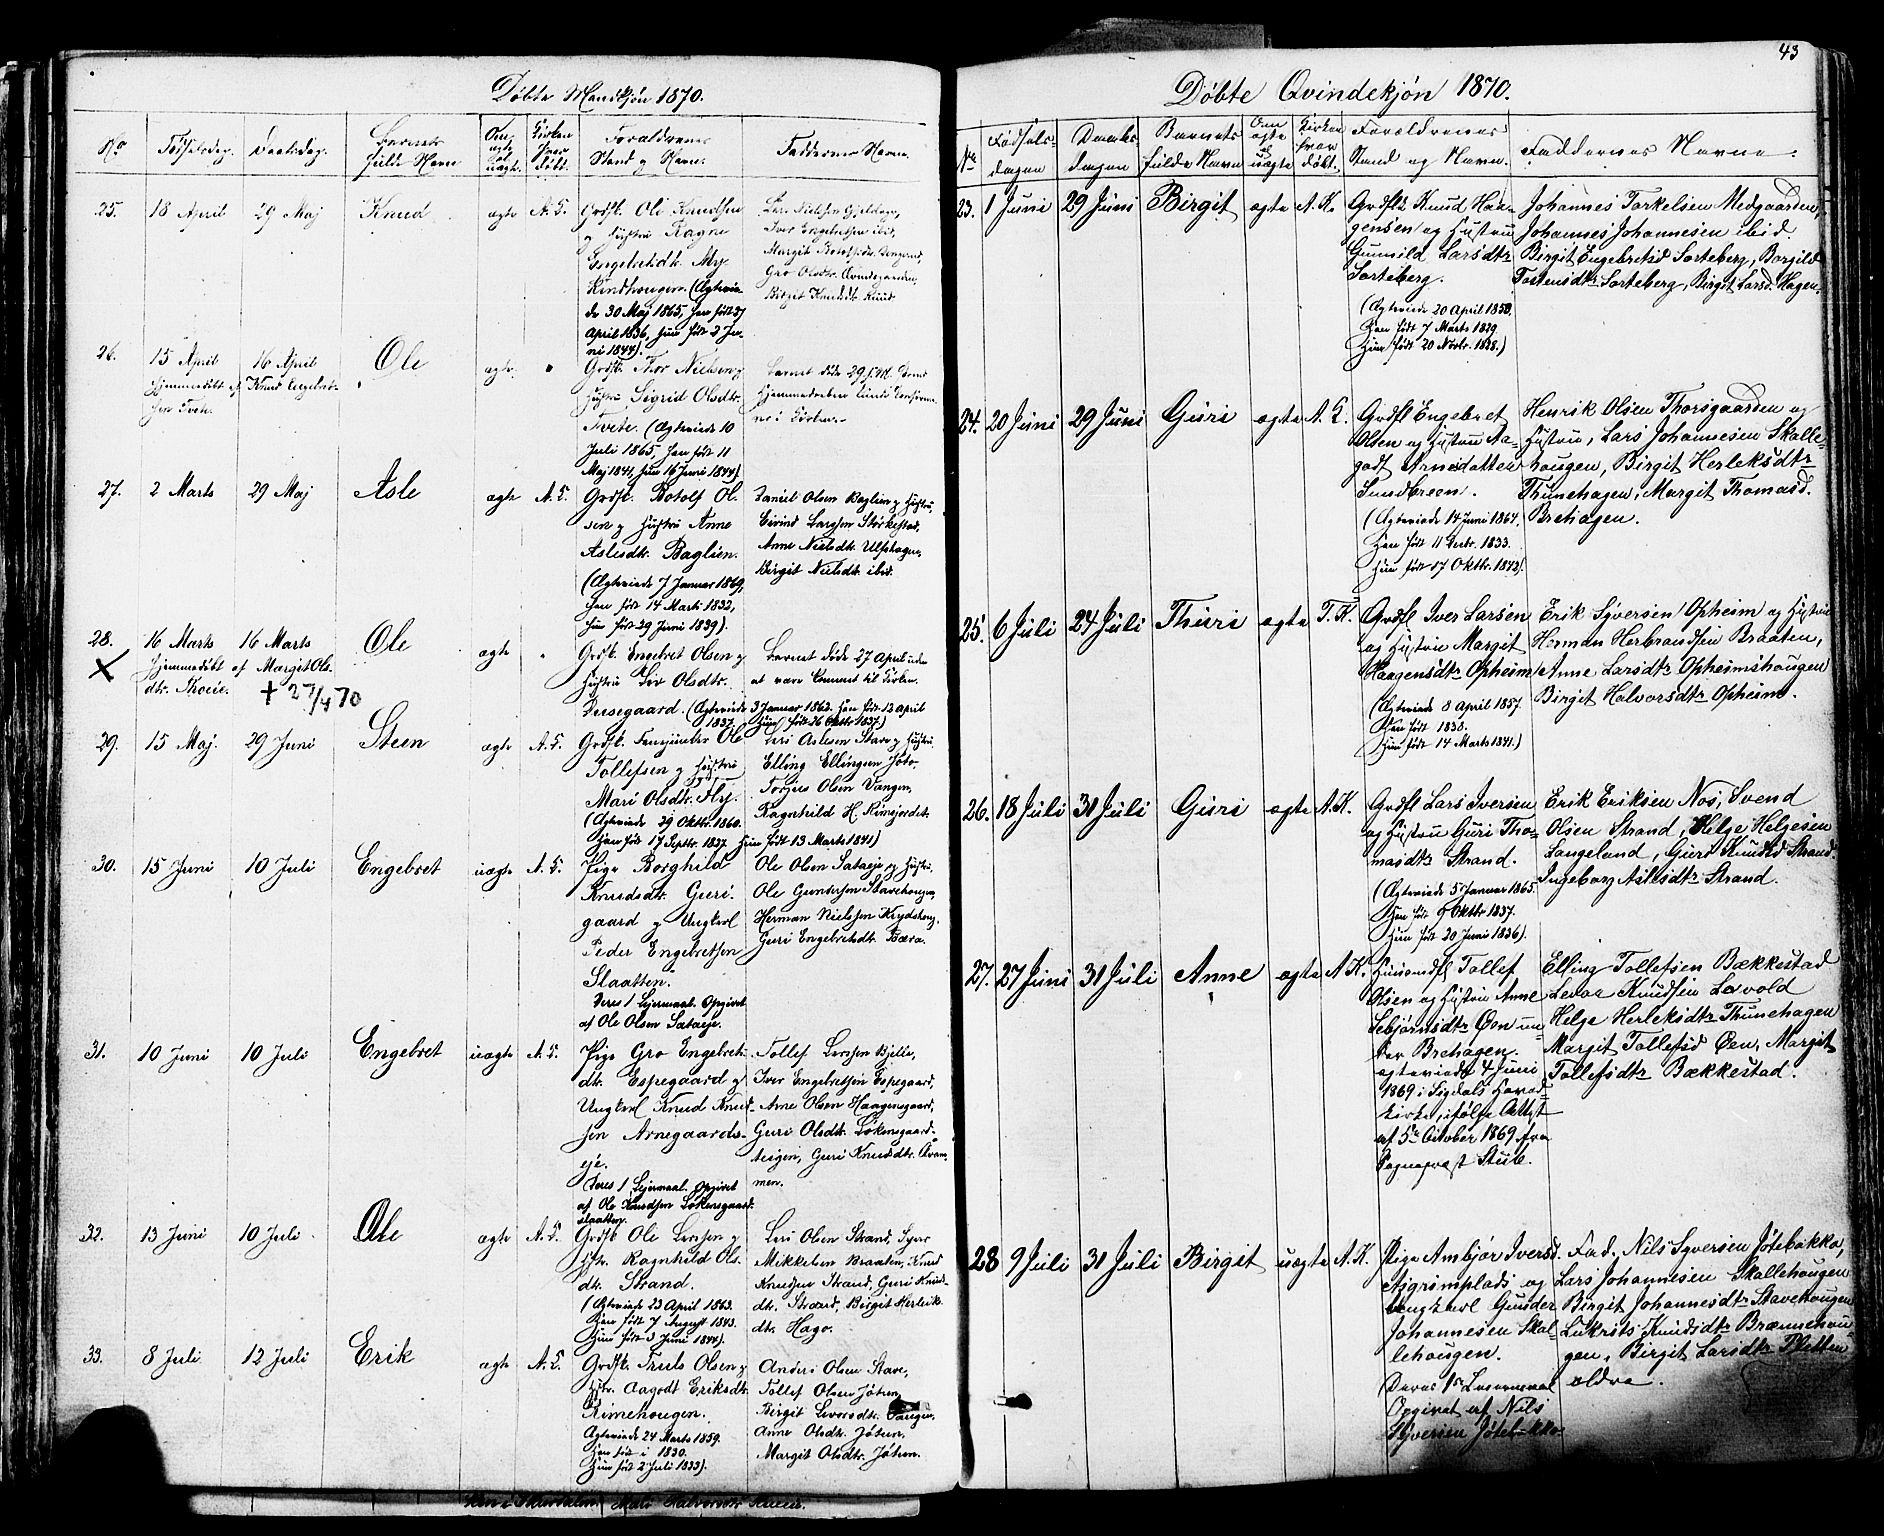 43
Døbte Mandkjøn 1870.
No
Fødselsdag.
Daabsdag.
Barnets
fulde Navn
Om
ægte
el
uægte.
Kirken
hvor
døbt.
Forældrenes
Stand og Navn.
Faddernes Navne.
25.
18 April
29 Maj
Knud
ægte
A. K.
Grdbr. Ole Knudsen
og Hustru Ragne
Engebretsdtr. My
(Ægtevie-
de 30 Maj 1865, han født 27
April 1836, hun født 2 Ju-
ni 1844).
Iver Engebretsen ibid,
Margit
Gro Olsdtr.
Birgit Knudsdtr. Ruud
26.
15 April
16 April
Hjemmedøbt af Knud Engebret-
sen Tveto.
Ole
ægte.
Grdbr. Thor Nielsen og
Hustru Sigrid Olsdtr.
Tveto. (Ægteviede 10
Juli 1865, han født 11
Maj 1841, hun 16 Juni 1844)
Barnet døde 29
27.
2 Marts
29 Maj
Asle
ægte
A. K.
Grdbr. Botolf Ol-
sen og Hustru Anne
Aslesdtr. Baglien.
(Ægteviede 7 Januar 1869,
han født 14 Marts 1832,
hun født 29 Juni 1839).
Daniel Olsen Baglien og Hustru,
Eivind Larssen Størkestad,
Anne Nielsdtr. Ulfshagen,
Birgit Nielsdtr. ibid.
28.
16 Marts
16 Marts
Hjemmedøbt af Margit Ols-
dtr. Thoeie.
+ 27/4 70
Ole
ægte
Grdbr. Engebret Olsen og
Hustru Liv Olsdtr.
(Ægteviede 3 Januar 1862. Han født 12 April
1837. Hun født 26 Oktbr. 1837.)
Barnet døde 27 April uden
at være kommet til Kirken.
29.
15 Maj.
29 Juni
Steen
ægte
A. K.
Ole
Tollefsen og Hustru
Mari Olsdtr. Fly.
(Ægteviede 29 Oktbr. 1860.
Han født 17 Septbr. 1837. Hun født 13 Marts 1841)
Aslesen Stave og Hustru,
Elling Ellingsen Jøto,
Torjus Olsen Vangen,
Ragnhild H. Rimejordet.
30.
15 Juni
10 Juli
Engebret
uægte
A. K.
Pige Borghild
Knudsdtr. Guri-
gaard og Ungkarl
Peder Engebretsen
Slaatten.
Deres 1 Lejermaal. Opgivet
af Ole Olsen Sataeje.
Ole Olsen Sataeje og Hustru,
Ole Gundersen Stavehougen,
Herman Nielssen
Guri Engebretsdtr. Bæra.
31.
10 Juni
10 Juli
Engebret
uægte
A. K.
Pige Gro Engebrets-
dtr. Espegaard og
Ungkarl Knud Knud-
sen Arnegaards-
eje.
Deres 1 Lejermaal. Opgivet
af Ole Knudsen Løkensgaard-
slaatten.
Tollef Larssen Bjella,
Iver Engebretsen Espegaard,
Arne Olsen Haagensgaard,
Guri Olsdtr. Løkensgaard-
teigen, Guri Knudsdtr. Kvam-
men.
32.
13 Juni
10 Juli
Ole
ægte
A. K.
Grdbr. Ole Larssen og
Hstr. Ragnhild Ols-
dtr. Strand.
(Ægteviede 23 April 1863.
Han født 7 August 1843.
Hun født 3 Juni 1844).
Olsen Strand, Syver
Mikkelsen Braaten, Knud
Knudsen Strand, Guri Knuds-
dtr. Strand, Birgit Herleiks-
dtr. Hago.
33.
8 Juli
12 Juli
Erik
ægte
A. K.
Grdbr. Truls Olsen og
Hstr. Aagodt Eriksdtr.
Rimehougen.
Ægteviede 24 Marts 1859.
Han født i 1830.
Hun født 2 Juli 1833).
Anders Olsen Stave,
Tollef Olsen Jøten,
Birgit Sversdtr. Vangen,
Anne Olsdtr. Jøten,
Margit Olsdtr. Jøten.
Døbte Qvindekjøn 1870.
No
Fødsels-
dagen
Daabs-
dagen
Barnets
fulde Navn
Om
ægte
el
uægte
Kirken
hvor
døbt.
Forældrenes
Stand og Navn.
Faddernes Navne.
23.
1 Juni
29 Juni
Birgit
ægte
A. K.
Grdbr. Knud Haa-
gensen og Hustru
Gunnild Larsdtr
Sorteberg.
(Ægteviede 20 April 1858.
Han født 7 Marts 1829.
Hun født 20 Novbr. 1838.)
Johannes Torkelsen Medgaarden,
Johannes Johannesen ibid.
Birgit Engebretsd Sorteberg, Borgild
Tostensdtr Sorteberg, Birgit Larsd. Hagen.
24.
20 Juni
29 Juni
Guri
ægte
A. K.
Grdbr. Engebret
Olsen og Hustru Aa-
godt Arnesdatter
Sundbreen.
(Ægteviede 14 Juni 1864.
Han født 11 Decbr. 1833.
Hun født 17 Oktbr. 1842).
Henrik Olsen Thorsgaarden og
Hustru, Lars Johannesen Skalle-
hougen, Birgit Herleksdtr
Thunehagen, Margit Thomasd.
Brehagen.
25.
6 Juli
24 Juli
Thuri
ægte
T. K.
Grdbr. Iver Larsen
og Hustru Margit
Haagensdtr Opheim
(Ægteviede 8 April 1857.
Han født 1833.
Hun født 14 Marts 1841.)
Erik Syversen Opheim og Hustru
Herman Herbrandsen Braaten,
Anne Larsdtr Opheimshougen
Birgit Halvorsdtr Opheim.
26.
18 Juli
31 Juli
Guri
ægte
A. K.
Grdbr. Lars Iversen
og Hustru Guri Tho-
masdtr Strand.
(Ægteviede 5 Januar 1865.
Han født 9 Oktbr. 1837.
Hun født 20 Juni 1836).
Erik Eriksen Nos, Svend
Olsen Strand, Helge Helgesen
Langeland, Guri Knudsd Strand
Ingeborg Aslesdtr Strand.
27.
27 Juni
31 Juli
Anne
ægte
A. K.
Huusmd. Tollef
Olsen og Hustru Anne
Sebjørnsdtr Øen un-
der Brehagen.
ægteviede 4 Juni
1869 i Sigdals Hoved-
kirke, ifølge Attest
af 5te October 1869 fra
Sognepræst Stub.
Elling Tollefsen Bækkestad
Levor Knudsen Lavold
Helge Herleksdtr Thunehagen
Margit Tollefsd Øen, Margit
Tollefsdtr Bækkestad.
28
9 Juli
31 Juli
Birgit
uægte
A. K.
Pige Ambjør Iversd.
Asgrimplads og
Ungkarl Gunder
Johannesen Skal-
lehougen.
Deres 1ste Leiermaal
Opgivet af Nils
Syversen Jøtebakko.
Fad. Nils Syversen Jøtebakko,
Lars Johannesen Skallehougen
Birgit Johannesdtr Stavehougen
Lukrits Knudsdtr Brænnehou-
gen, Birgit Larsdtr Pletten
ældre.